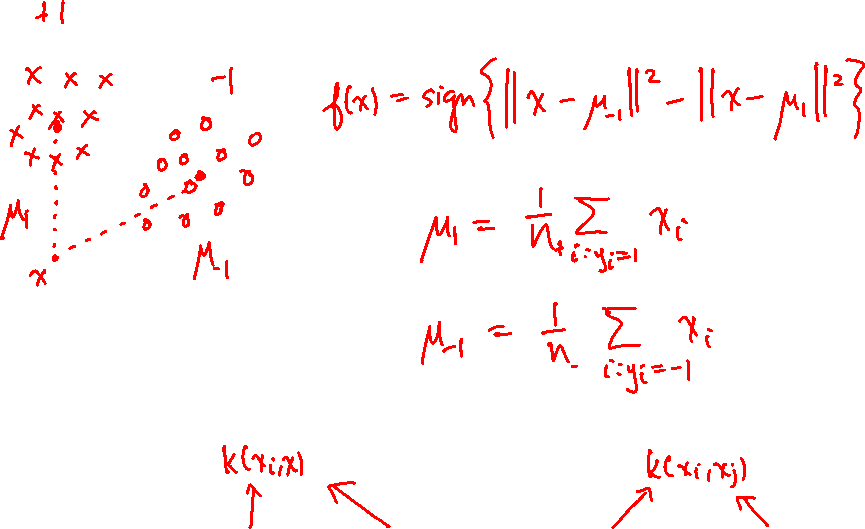 +1
-1
f(x) = sign{||x - μ₋₁||² - ||x - μ₁||²}
μ₁ = 1/n₊ ∑_{i:yᵢ=1} xᵢ
μ₁
μ₋₁
x
μ₋₁ = 1/n₋ ∑_{i:yᵢ=-1} xᵢ
k(xᵢ,x)
k(xᵢ,xⱼ)